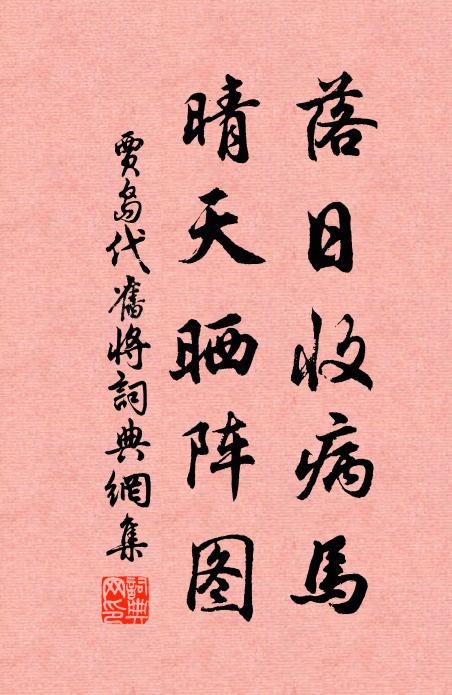 落日收病馬
晴天晒阵图
賈島代舊將詞典網集
詞典
网印